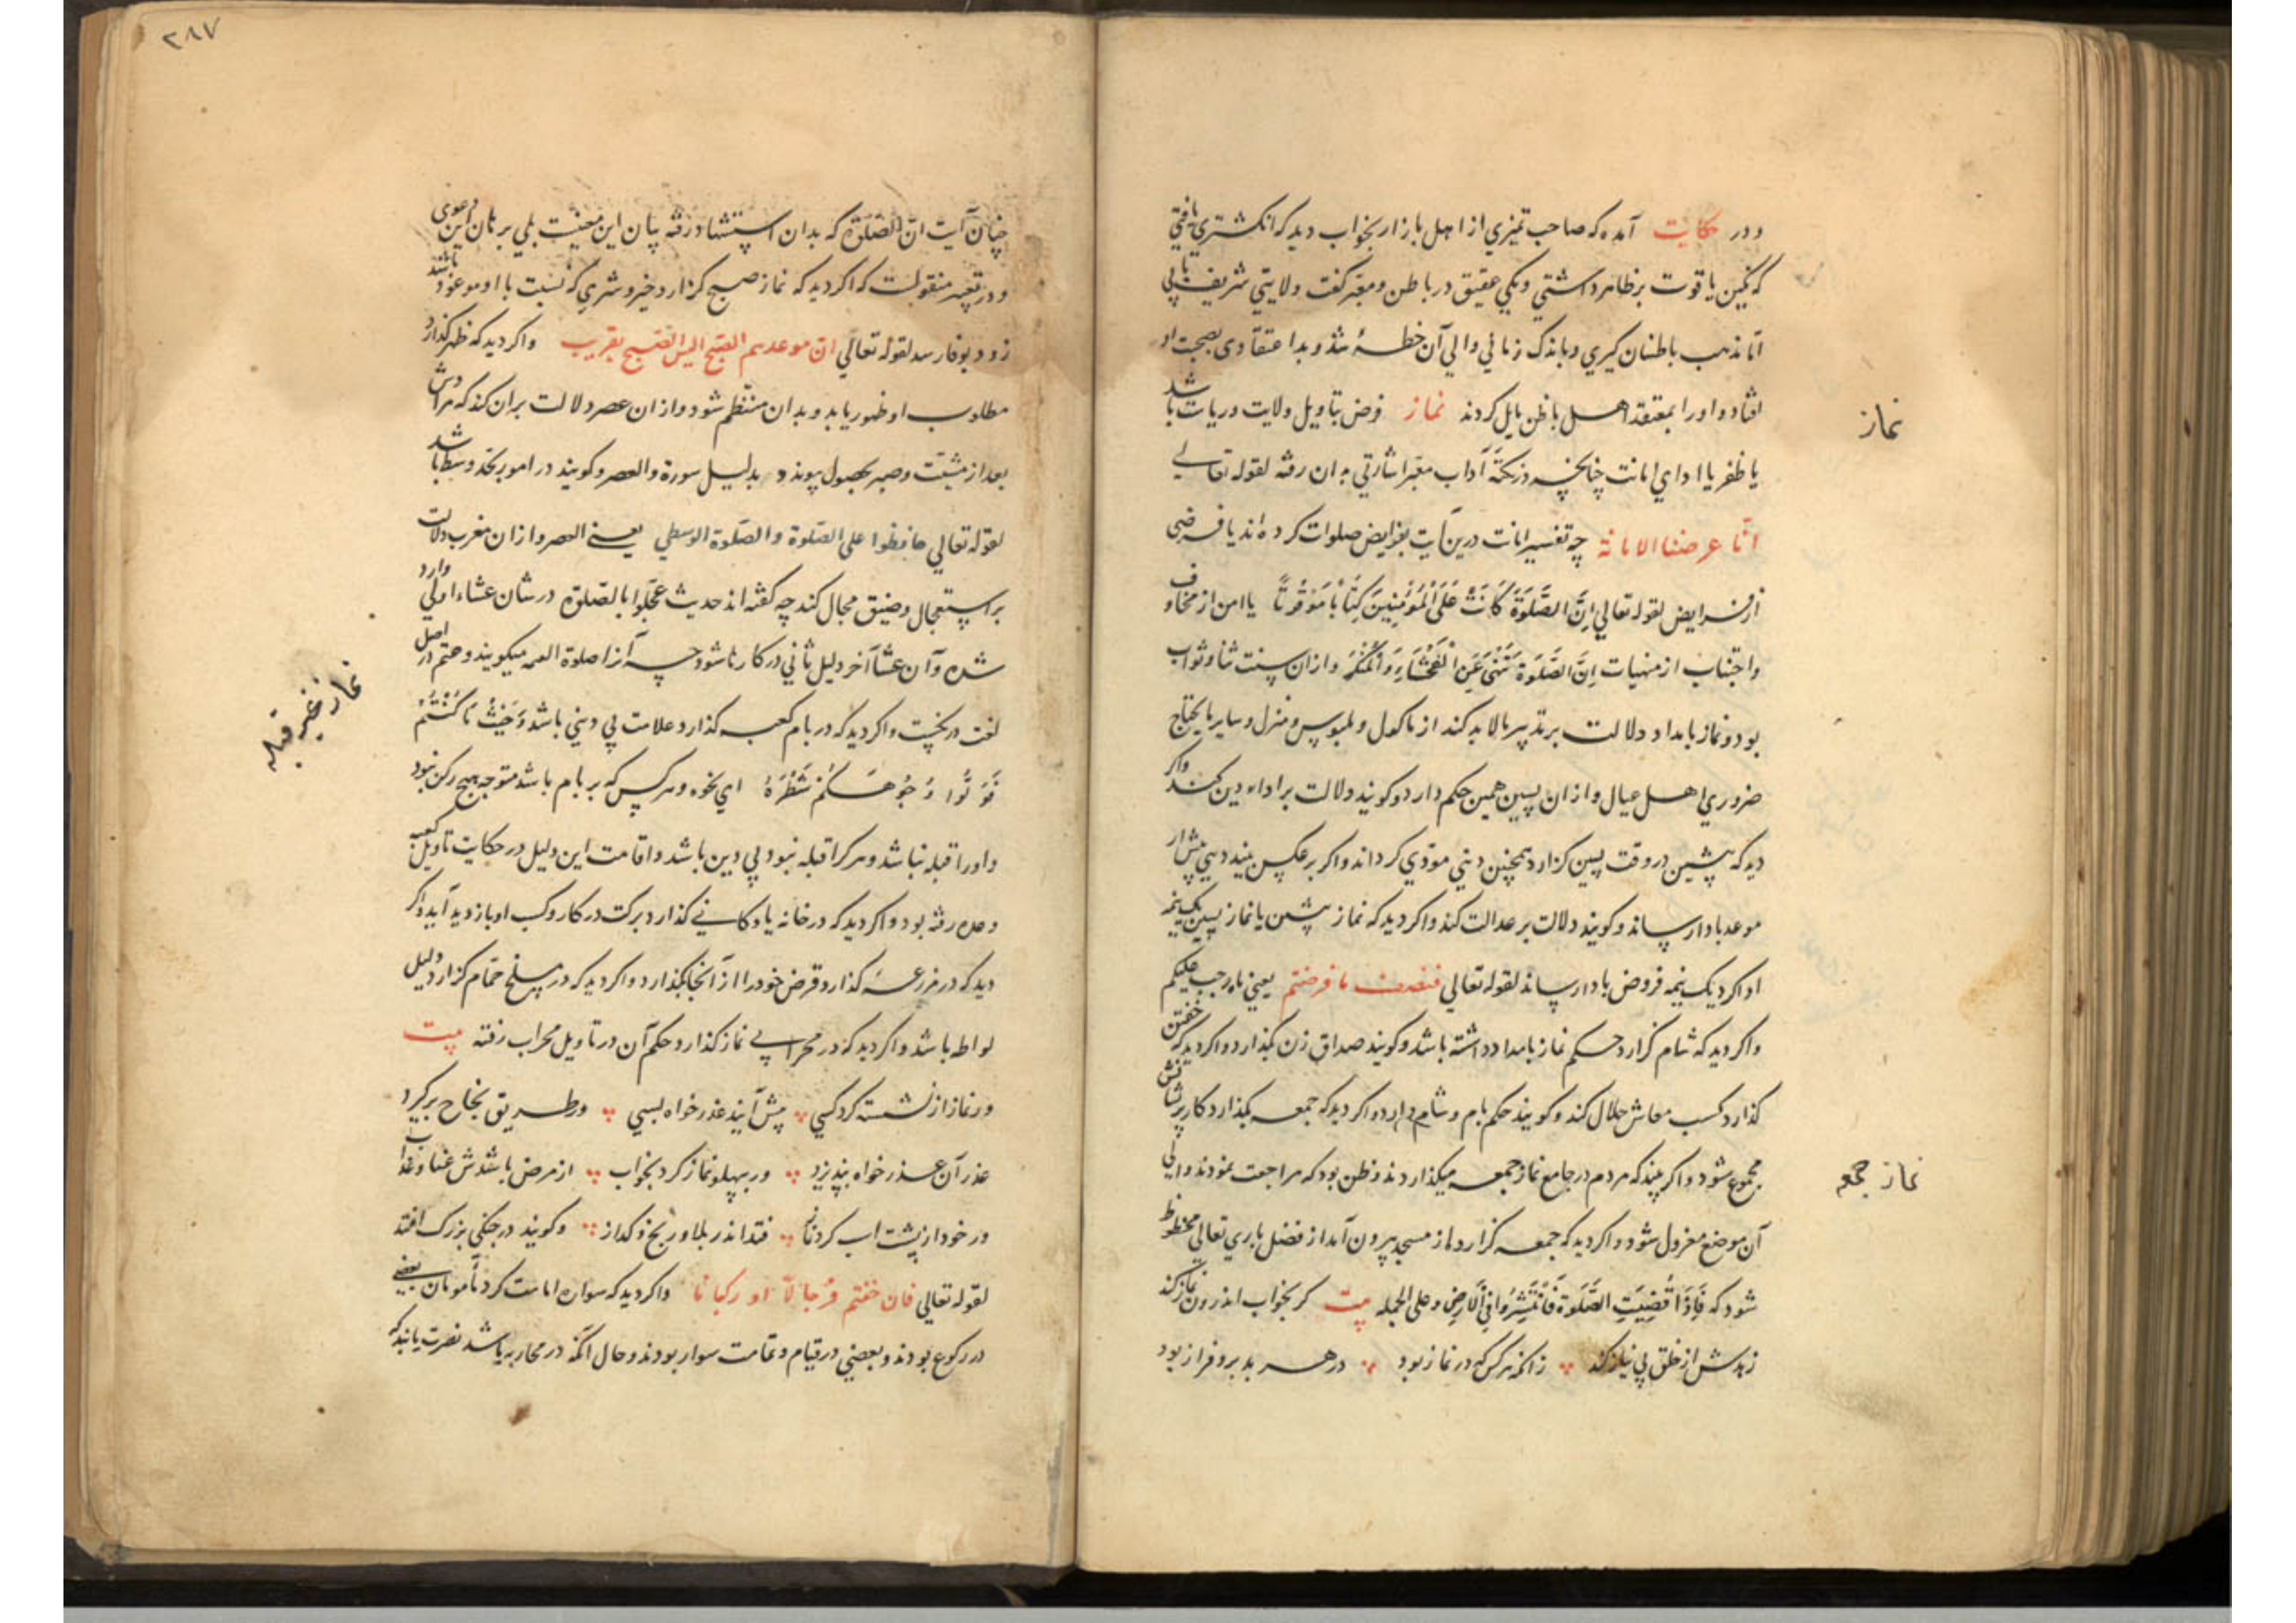 ودر حکایت آمده که صاحب تمیزی از اهل بازار بخواب دید که انکشتری یافتی
که نکین یاقوت بر ظاهر داشتی ونکی عقیق در باطن ومعبّر کفت ولایتی شریف یابی
امّا مذهب باطنیان کیری وباندک زمانی والی آن خطه شد وبد اعتقادی بصحبت او
افتاد واورا بمعتقد اهل باطن مایل کردند نماز فرض بتاویل ولایت وریاست باشد
نماز
یا ظفر یا ادای امانت چنانچه در نکته آداب معبّر اشارتی به ان رفته لقوله تعالی
انّا عرضنا الامانة چه تفسیر امانت درین آیت بفرایض صلوات کرده اند یا فرضی
از فرایض لقوله تعالی اِنَّ الصَّلَوةَ كَانَتْ عَلَى الْمُؤْمِنِينَ كِتَابًا مَوْقُوتًا یا امن از مخاوف
واجتناب از منهیات اِنَّ الصَّلَوةَ تَنْهَى عَنِ الْفَحْشَاءِ وَالْمُنْكَرِ وازان سنت ثنا وثواب
بود ونماز بامداد دلالت بر تدبیر مالابد کند از ماکول وملبوس ومنزل وسایر مایحتاج
ضروری اهل عیال وازان پسین همین حکم دارد وکویند دلالت بر اداء دین کند واکر
دید که پیشین در وقت پسین کزارد همچنین دینی مودّی کرداند واکر برعکس بیند دینی پیش از
موعد بادا رساند وکویند دلالت بر عدالت کند واکر دید که نماز پیشین یا نماز پسین یک نیمه
ادا کرد یک نیمه فروض بادا رساند لقوله تعالی فنصف ما فرضتم یعنی ماوجب علیکم
واکر دید که شام کزارد حکم نماز بامداد داشته باشد وکویند صداق زن بکذارد واکر دید که خفتن
کذارد کسب معاش حلال کند وکویند حکم بام وشام دارد واکر دید که جمعه بکذارد کار پریشانش
مجموع شود واکر بیند که مردم در جامع نماز جمعه میکذاردند وظن بود که مراجعت نمودند والی
نماز جمعه
آن موضع معزول شود واکر دید که جمعه کزارد واز مسجد بیرون آمد از فضل باری تعالی محظوظ
شود که فَاِذَا قُضِيَتِ الصَّلَوةُ فَانْتَشِرُوا فِي الْاَرْضِ وعلی الجمله بیت کر بخواب اندرون نماز کند
زهدش از خلق بی نیاز کند زانکه هرکس که در نماز بود در هر بد برو فراز بود
۲۸۷
چنان آیت انّ الصّلوة که بدان استشهاد رفته بیان این معنیست بلی برهان این دعوی
ودر تعبیر منقولست که اکر دید که نماز صبح کزارد خیر وشری که نسبت با او موعود باشد
زود بوفا رسد لقوله تعالی انّ موعدهم الصّبح الیس الصّبح بقریب واکر دید که ظهر کذارد
مطلوب او ظهور یابد وبدان منتظم شود وازان عصر دلالت بران کند که مرادش
بعد از مشقّت وصبر بحصول پیوندد بدلیل سورة والعصر وکویند در امور بحّد وسط باشد
لقوله تعالی حافظوا علی الصّلوة والصّلوة الوسطی یعنی العصر وازان مغرب دلالت
بر استعجال وضیق مجال کند چه کفته اند حدیث عجّلوا بالصّلوة در شان عشاء اولی وارد
شده وآن عشاء آخر دلیل تأنی در کارها شود چه آنرا صلوة العتمه میکویند وعتم در اصل
لغت درنکیست واکر دید که در بام کعبه کذارد علامت بی دینی باشد وَحَيْثُ مَا كُنْتُمْ
فَوَلُّوا وُجُوهَكُمْ شَطْرَهُ ای نحوه وهرکس که بر بام باشد متوجه هیچ رکن نبود
نماز غیر قبله
واورا قبله نباشد وهرکرا قبله نبود بی دین باشد واقامت این دلیل در حکایت تاویل کعبه
وعده رفته بود واکر دید که در خانه یا دکانی کذارد برکت در کار وکسب او بازدید آید واکر
دید که در مزرعه کذارد قرض خودرا از آنجا بکذارد واکر دید که در مسلخ حمّام کزارد دلیل
لواطه باشد واکر دید که در محرابی نماز کذارد حکم آن در تاویل محراب رفته بیت
ور نماز از نشسته کرد کسی پیش آیند عذرخواه بسی ور طریق نجاح برکیرد
عذر آن عذرخواه بپذیرد ور بپهلو نماز کرد بخواب از مرض باشدش عنا وعذاب
ور خود از پشت اسب کرد نماز فتد اندر بلا ورنج وکداز وکویند در جنکی بزرک افتد
لقوله تعالی فان خفتم فرجالا او رکبانا واکر دید که سواره امامت کرد مامومان بعضی
در رکوع بودند وبعضی در قیام وتمامت سوار بودند وحال آنکه در محاربه باشد نصرت یابد که